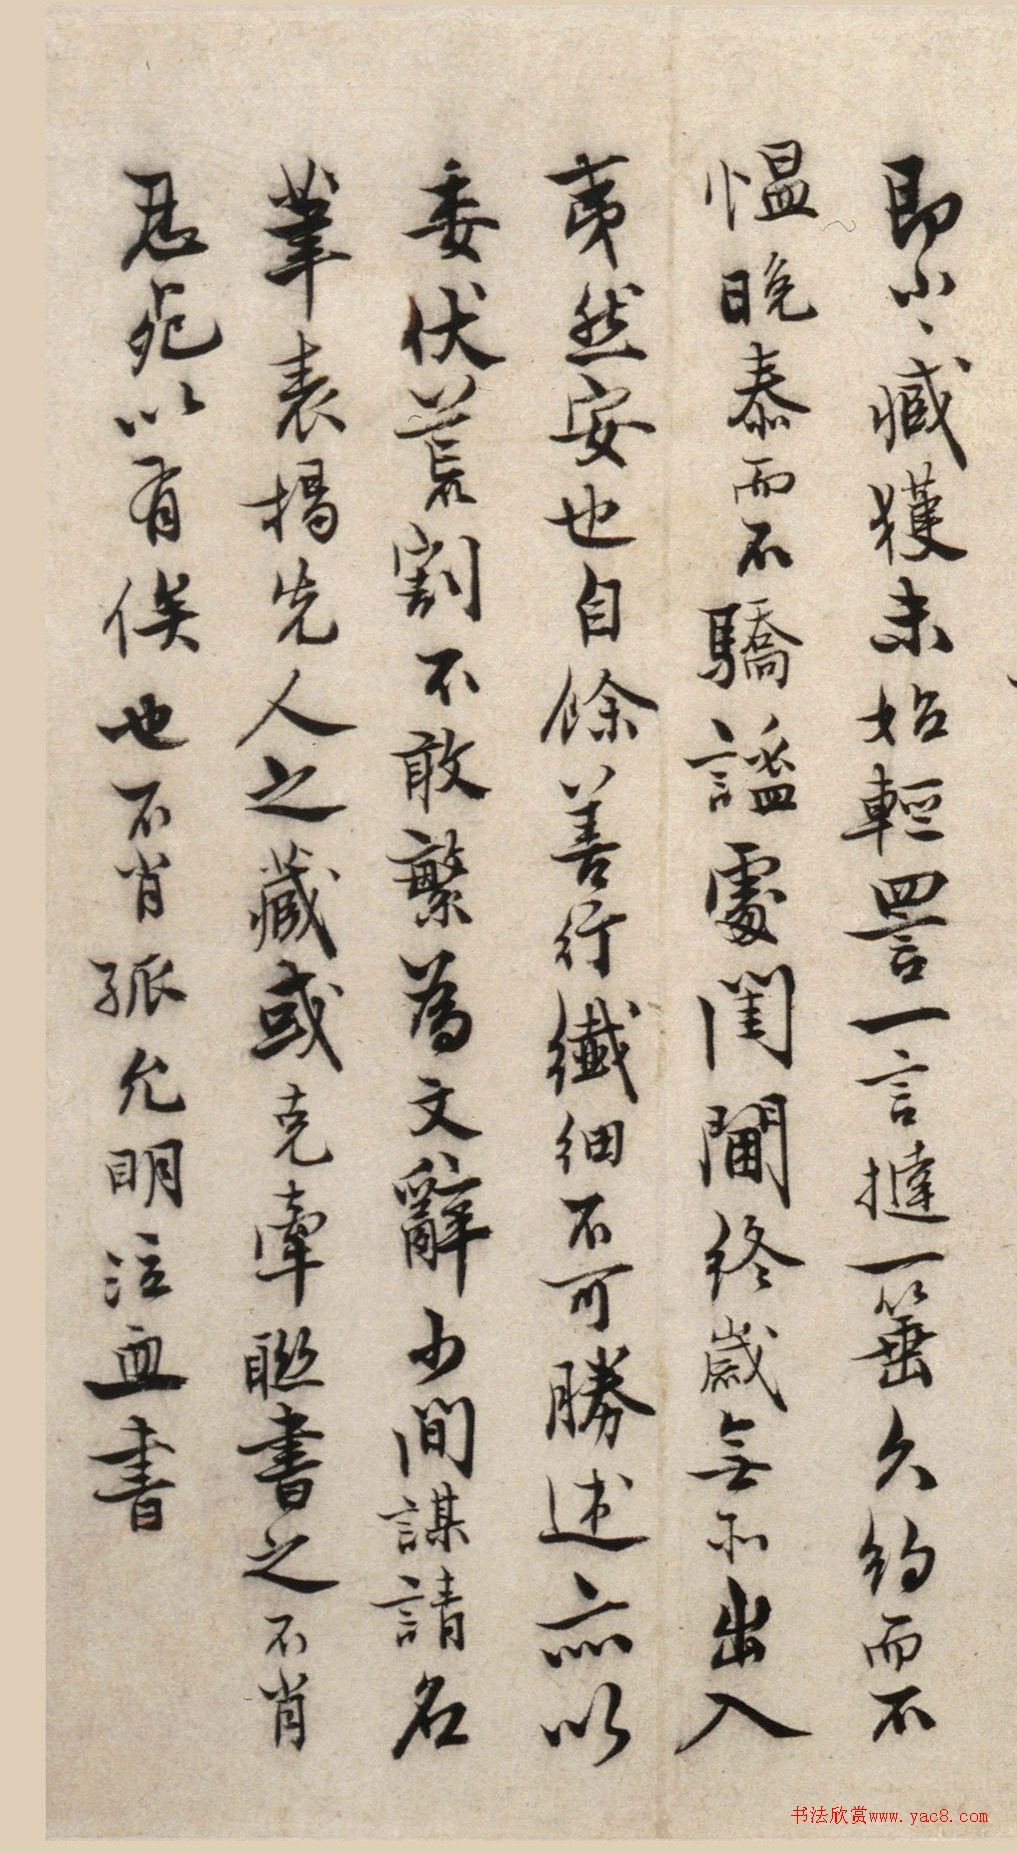 即小小臧獲未始輕詈一言撻一箠久約而不
愠晚泰而不驕謐處閨闥終歲無所出入
夷然安也自餘善行纖細不可勝述亦以
委伏荒割不敢繁為文辭少間謀請名
筆表揭先人之藏或克牽聯書之不肖
忍死以有俟也不肖孤允明泣血書
书法欣赏www.yac8.com